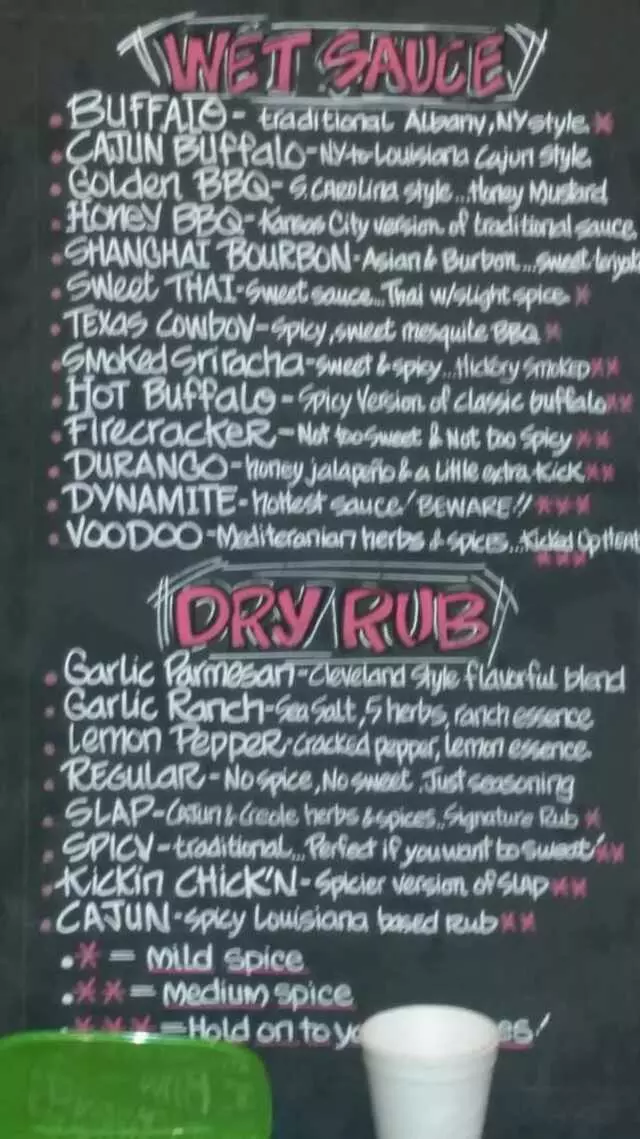 WET SAUCE
• BUFFALO - traditional Albany, NY style *
• CAJUN Buffalo - NY to Louisiana Cajun style
• Golden BBQ - S. Carolina style... Honey Mustard
• Honey BBQ - Kansas City version of traditional sauce
• SHANGHAI BOURBON - Asian & Burbon... sweet
• Sweet THAI - Sweet sauce... Thai w/slight spice *
• TEXAS COWBOY - Spicy, sweet mesquite BBQ *
• Smoked Sriracha - sweet & spicy... Hickory Smoked **
• HOT Buffalo - Spicy Version of classic buffalo **
• FIRECRACKER - Not too Sweet & Not too Spicy **
• DURANGO - honey jalapeño & a little extra kick **
• DYNAMITE - Hottest sauce! BEWARE!! ***
• VOODOO - Mediteranian herbs & spices... Kicked Up Heat
***
DRY RUB
• Garlic Parmesan - Cleveland Style flavorful blend
• Garlic Ranch - Sea Salt, 5 herbs, ranch essence
• Lemon Pepper - cracked pepper, lemon essence
• REGULAR - No spice, No sweet. Just seasoning
• SLAP - Cajun & Creole herbs & spices.. Signature Rub *
• SPICY - traditional... Perfect if you want to sweat! **
• Kickin CHICK'N - Spicier version of SLAP **
• CAJUN - Spicy Louisiana based Rub **
• * = Mild Spice
• ** = Medium Spice
• *** = Hold on to